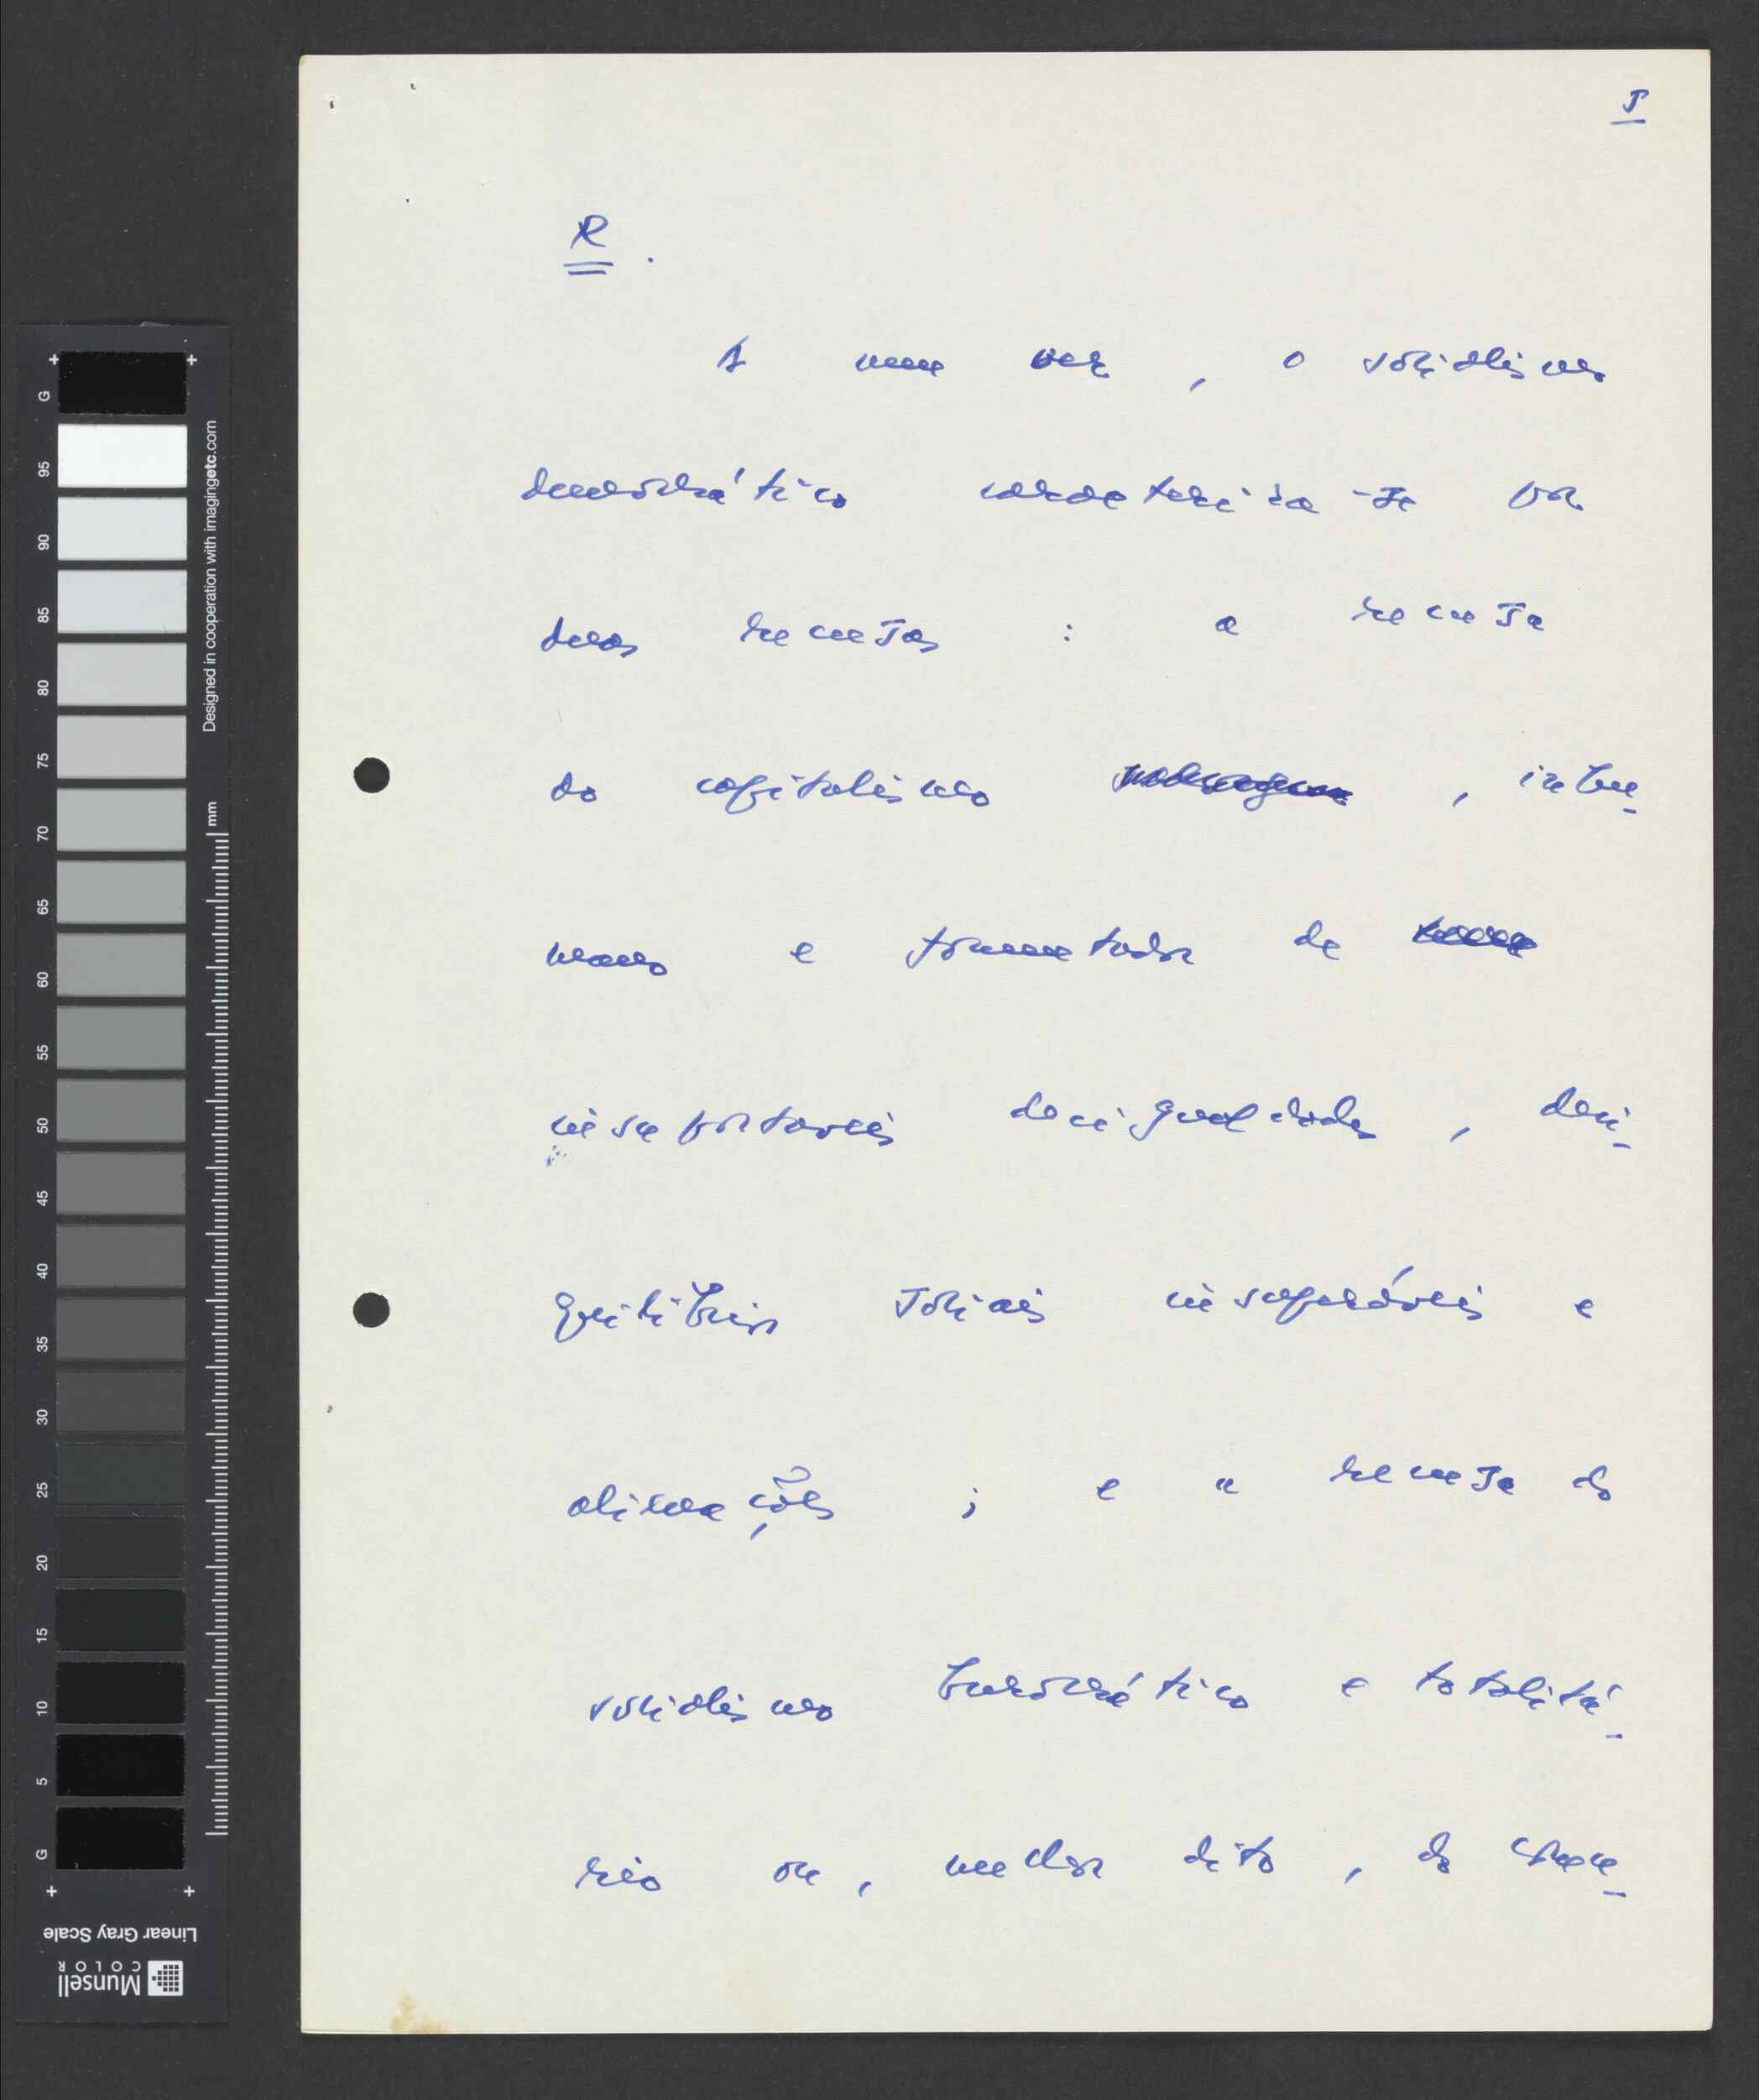 5
R.
A meu ver, o socialismo
democrático caracteriza-se por
duas recusas: a recusa
do capitalismo, inhu-
mano e fomentador de
insuportáveis desigualdades, dese-
quilíbrios sociais insuperáveis e
alienações; e a recusa do
socialismo burocrático e totalitá-
rio ou, melhor dito, do comu-
G
95
90
85
80
75
70
65
60
55
50
45
40
35
30
25
20
15
10
5
G
mm
Designed in cooperation with imagingetc.com
Linear Gray Scale
Munsell
COLOR